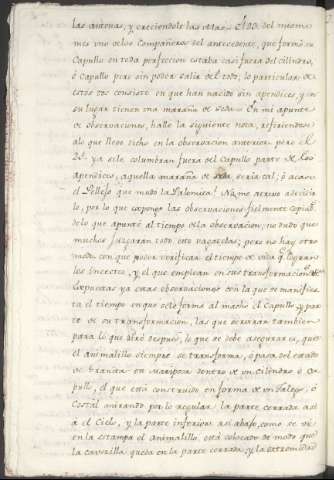 las antenas, y creciendole las alas. El 23. del mismo
mes vno de los Compañeros del antecedente, que formó su
Capullo en toda perfeccion estaba casi fuera del cilindro,
ó Capullo pero sin poder salir del todo; lo particular de
estos dos consiste en que han nacido sin apendices, y en
su lugar tienen una maraña de seda. En mi apunte
de observaciones, hallo la siguiente nota, refiriendose
alo que llevo dicho en la observacion anterior. pero el
25. ya se le columbran fuera del Capullo parte de los
apendices; aquella maraña de seda seria tal; ó acaso
el Pellejo que mudó la Palomita? No me atrevo a decidir
lo, por lo que expongo las observaciones fielmente copiadas
delo que apunté al tiempo de la observacion; no dudo que
muchos juzgaran todo esto vagatelas; pero no hay otro
modo con que poder verificar el tiempo de vida q.e logran
los Insectos, y el que emplean en sus transformaciones.
Expuestas ya estas observaciones con la que se manifies
ta el tiempo en que se le forma al macho el Capullo, y par
te de su transformacion, las que servirán tambien
para lo que diré despues, lo que se debe asegurar es, que
el animalillo siempre se transforma, ó pasa del estado
de en Mariposa dentro de vn Cilindro ó Ca
pullo, el que está construido en forma de vn Talego, ó
Costal mirando por lo regular la parte cerrada acia
a el Cielo, y la parte inferior asi abajo, como se vé
en la estampa el animalillo, está colocado de modo que
la cavezilla queda en la parte cerrada, y la extremidad